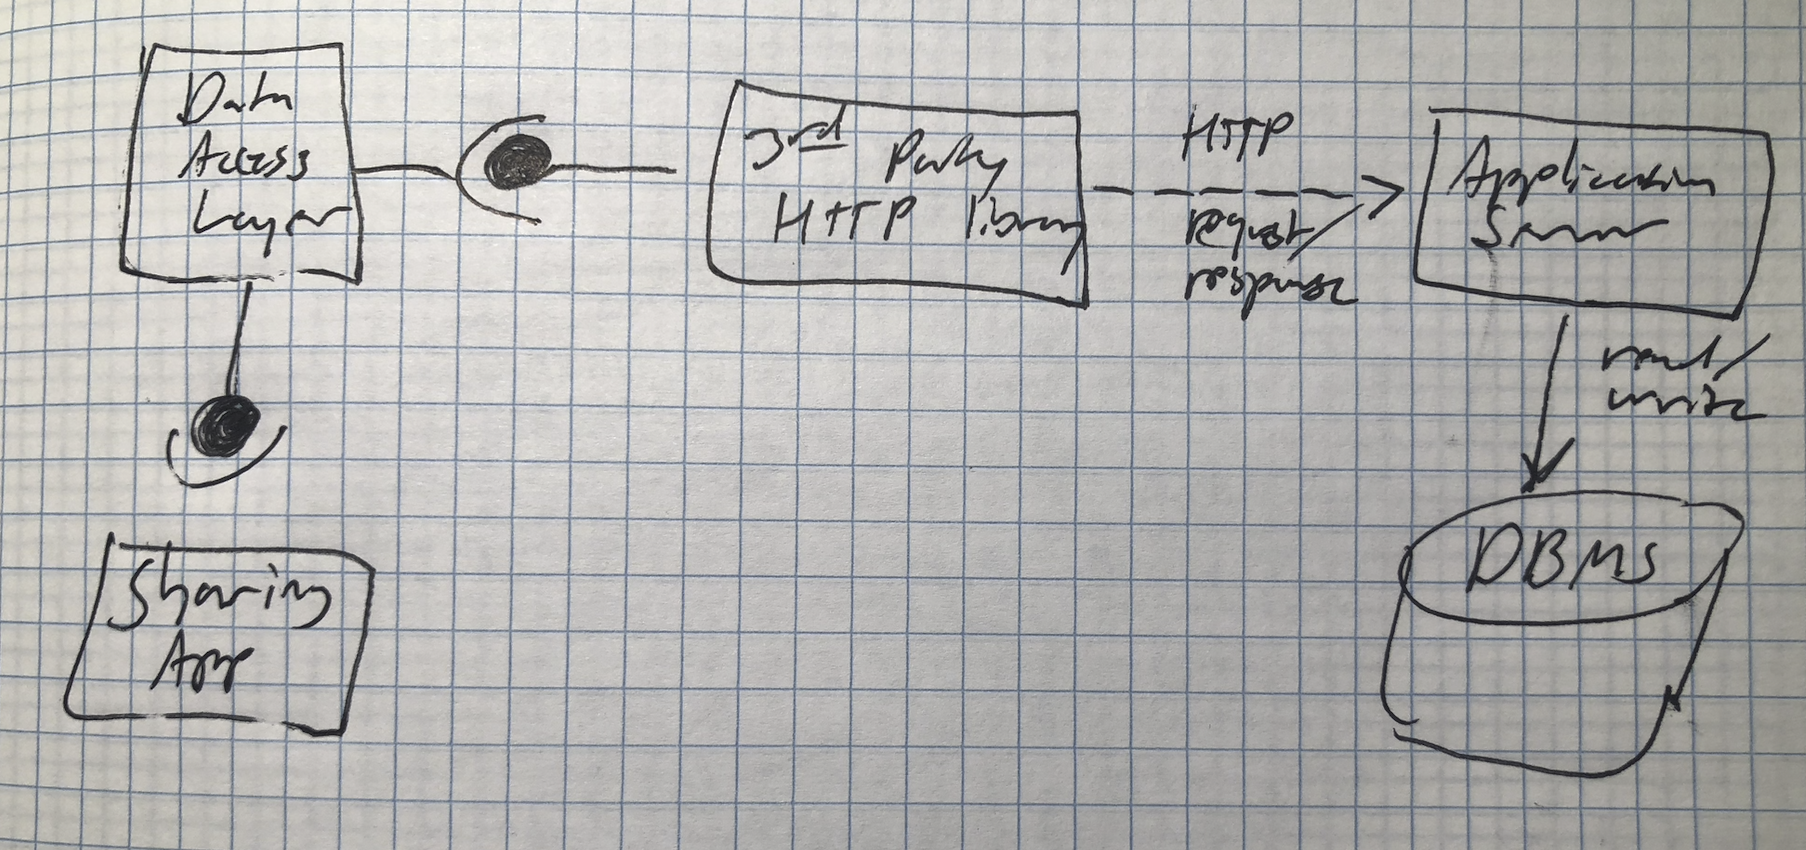 Data
Access
Layer
3rd Party
HTTP library
HTTP
request/
response
Application
Server
read/
write
DBMS
Sharing
App